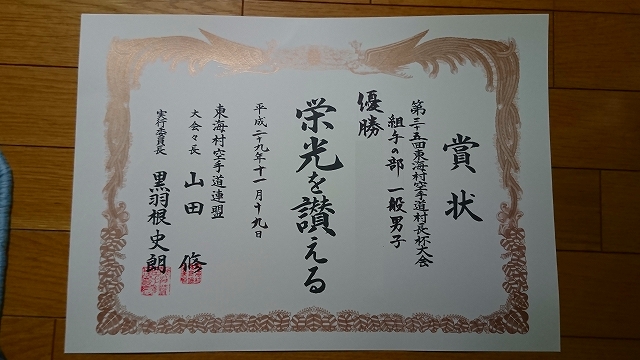 賞状
第三十五回東海村空手道村長杯大会
組手の部 一般男子
優勝
栄光を讃える
平成二十九年十一月十九日
東海村空手道連盟
大会々長 山田 修
実行委員長 黒羽根史朗